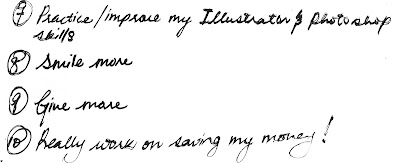 7 Practice/improve my Illustrator & Photoshop
skills
8 Smile more
9 Give more
10 Really work on saving my money!